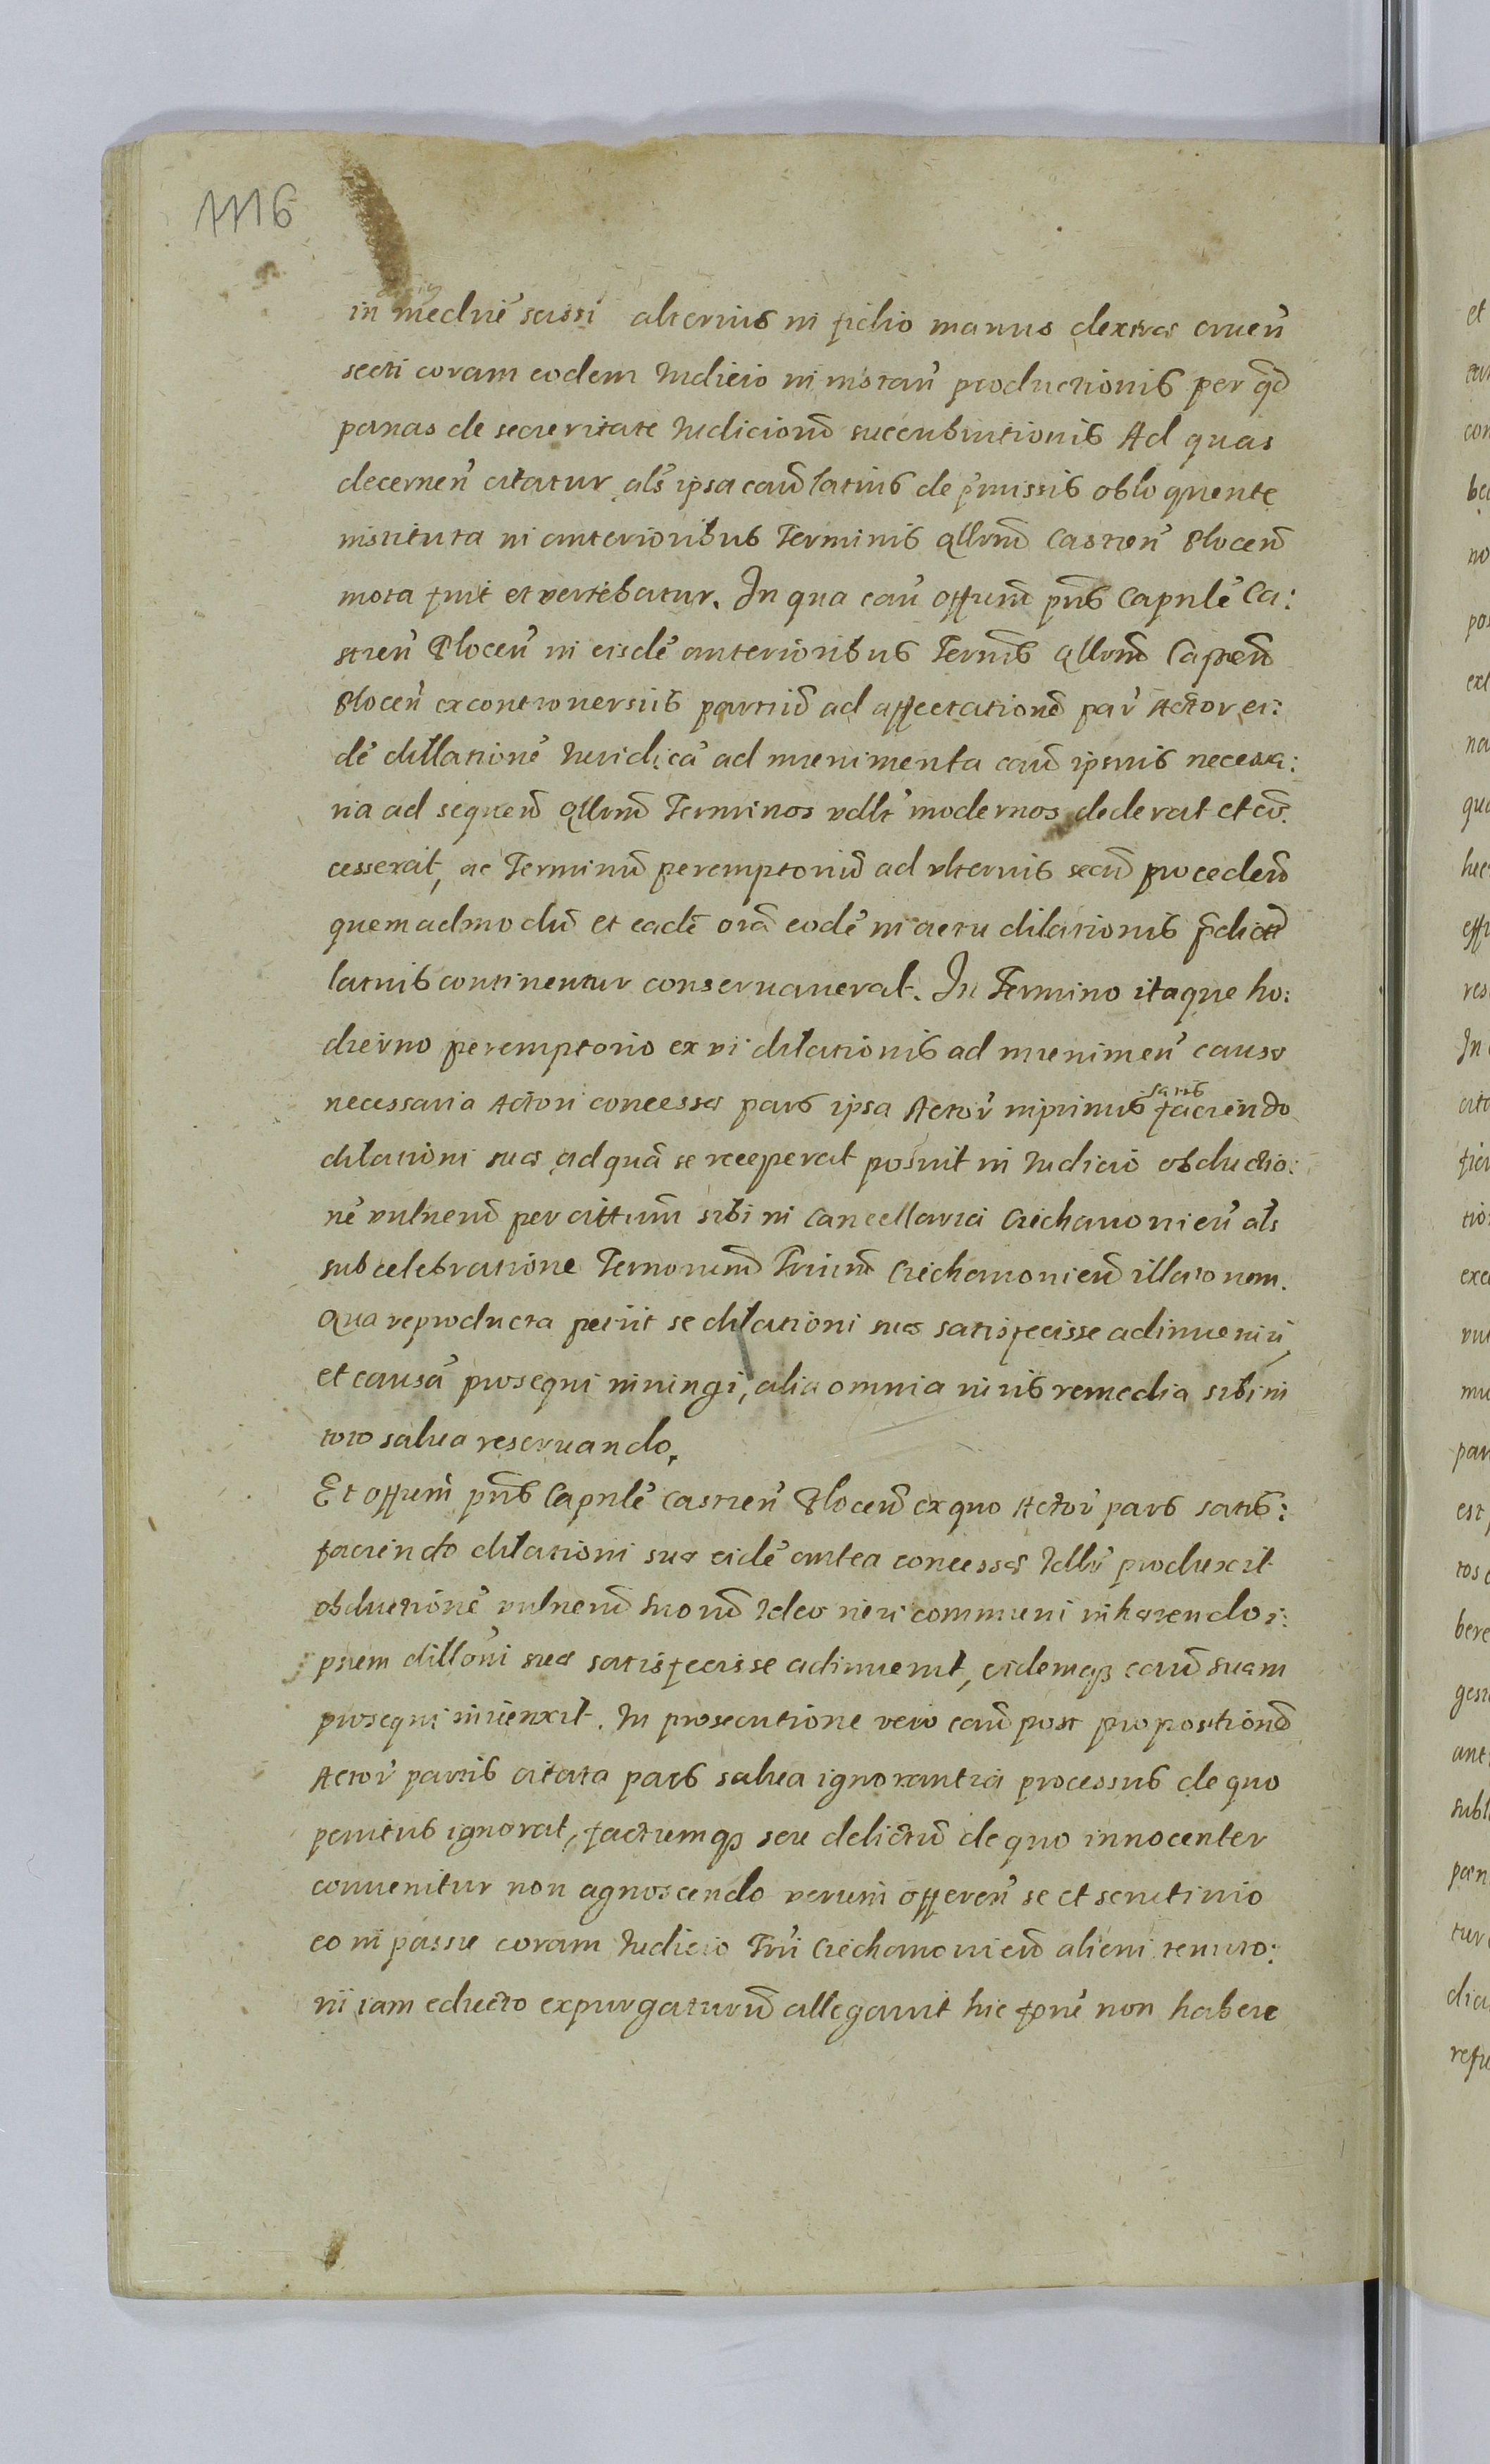 1116
in medie sussi alterius in ficlio manus dextræ cruen̄
secti coram eodem Iudicio in instan̄ productionis per qd̄
pænas de secueritate Iudiciorū succubintionis Ad quas
decernen̄ citatur als̄ ipsa caus̄ latius de p̄missis obloquente
instituta in anterioribus Terminis qllrm̄ Castren̄ Plocen̄
mota fuit et vertebatur. In qua cau̅ offium̄ pn̄s Capnle̅ Ca:
stren̄ Plocen̄ in eisde̅ anterioribus Termis̄ qllrm̄ Capnen̄
Plocen̄ ex controversiis partiū ad affectatione̅ par̄ Actor ei:
de̅ dillatione̅ Iuridica̅ ad munimenta caus̄ ipsius necessa:
ria ad sequen̄ qllrm̄ Terminos vdlt̄ modernos dederat et co̅
cesserat, ac Terminū peremptoriū ad vlterius secū procedend̄
quemadmodū et eade̅ ora̅ eode̅ in actu dilationis p̄dicta̅
latius continentur conseruauerat. In Termino itaque ho:
dierno peremptorio ex vi dilationis ad munimen̄ causæ
necessaria Actori concessæ pars ipsa Actor̄ inprimis satis faciendo
dilationi suæ ad qua̅ se receperat posuit in Iudicio obductio:
ne̅ vulnerū per cittum̄ sibi in Cancellaria Ciechanouien̄ als̄
sub celebratione Ternorum̄ Trium̄ Ciechanouien̄ illato nem.
Qua reproducta petiit se dilationi suæ satisfecisse adinueniri
et causa̅ prosequi iniungi, alia omnia iuris remedia sibi in
toto salua reseruando.
Et offium̄ pn̄s Capnle̅ Castren̄ Plocen̄ ex quo Actor̄ pars satis:
faciendo dilationi suæ eide̅ antea concessæ Idlr̄ produxit
obductione̅ vulnerū suorū Ideo iuri communi inhærendo i:
psum dillon̄i suæ satisfecisse adinuenit, eidemqꝫ caus̄ suam
prosequi iniunxit. In prosecutione vero caus̄ post propositione̅
Actor̄ partis citata pars salua ignorantia processus de quo
penitus ignorat, factumqꝫ seu delictū de quo innocenter
conuenitur non agnoscendo verum offeren̄ se et scrutinio
eo in passu coram Iudicio Trii Ciechanouien̄ alieni tenuto:
ri iam educto expurgaturū allegauit hic fone̅ non habere